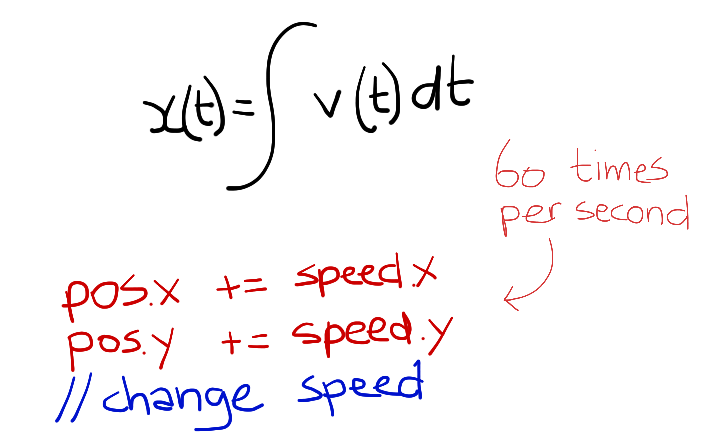 x(t)=∫v(t)dt
60 times
per second
pos.x += speed.x
pos.y += speed.y
//change speed